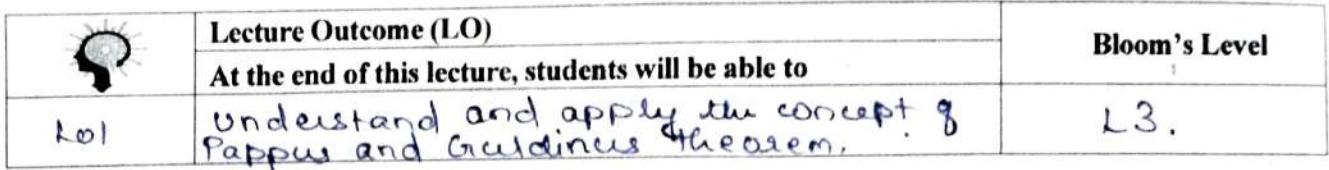 Lecture Outcome (LO)
Bloom's Level
At the end of this lecture, students will be able to
LO1
understand and apply the concept of
Pappus and Guldinus theorem.
L3.